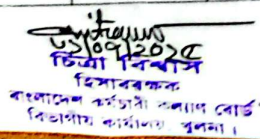 ০১/০৭/২০২৫
চিত্রা বিশ্বাস
হিসাবরক্ষক
বাংলাদেশ কর্মচারী কল্যাণ বোর্ড
বিভাগীয় কার্যালয়, খুলনা।